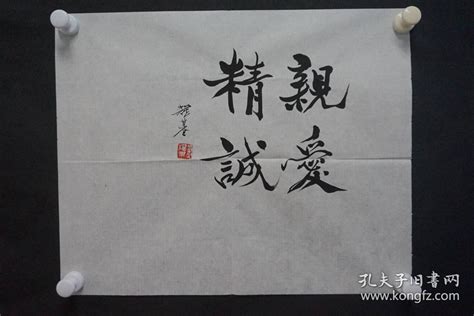 親愛
精誠
孔夫子旧书网
www.kongfz.com